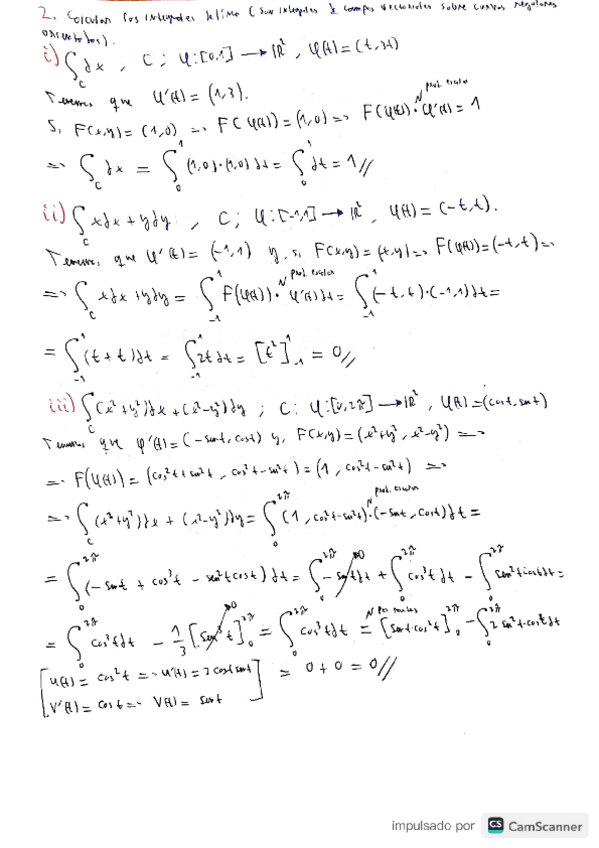 2. Calcular las integrales de línea (son integrales de campos vectoriales sobre curvas regulares
orientadas).
i) ∫_C dx , C: φ:[0,1] → ℝ², φ(t) = (t,3t)
Tenemos que φ'(t) = (1,3).
Si F(x,y) = (1,0) => F(φ(t)) = (1,0) => F(φ(t))·φ'(t) = 1
Prod. escalar
=> ∫_C dx = ∫_0^1 (1,0)·(1,0) dt = ∫_0^1 dt = 1//
ii) ∫_C xdx + ydy , C: φ:[-1,1] → ℝ², φ(t) = (-t,t).
Tenemos que φ'(t) = (-1,1) y si F(x,y) = (x,y) => F(φ(t)) = (-t,t) =>
Prod. escalar
=> ∫_C xdx + ydy = ∫_{-1}^1 F(φ(t))·φ'(t) dt = ∫_{-1}^1 (-t,t)·(-1,1) dt =
= ∫_{-1}^1 (t+t) dt = ∫_{-1}^1 2t dt = [t²]_{-1}^1 = 0//
iii) ∫_C (x²+y²)dx + (x²-y²)dy ; C: φ:[0,2π] → ℝ², φ(t) = (cost, sent)
Tenemos que φ'(t) = (-sent, cost) y F(x,y) = (x²+y², x²-y²) =>
=> F(φ(t)) = (cos²t + sen²t, cos²t - sen²t) = (1, cos²t - sen²t) =>
Prod. escalar
=> ∫_C (x²+y²)dx + (x²-y²)dy = ∫_0^{2π} (1, cos²t - sen²t)·(-sent, cost) dt =
= ∫_0^{2π} (-sent + cos³t - sen²t cost) dt = ∫_0^{2π} -sent dt + ∫_0^{2π} cos³t dt - ∫_0^{2π} sen²t cost dt =
= ∫_0^{2π} cos³t dt - 1/3 [sen³t]_0^{2π} = ∫_0^{2π} cos³t dt = [sent·cos²t]_0^{2π} - ∫_0^{2π} 2 sen²t·cost dt
Por partes
u(t) = cos²t => u'(t) = 2 cost sent
v'(t) = cost => v(t) = sent
= 0 + 0 = 0//
impulsado por CS CamScanner